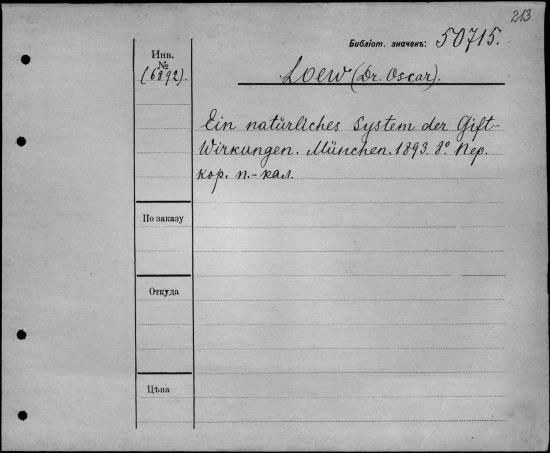 213
Библіот. значекъ: 50715.
Инв.
№
(6892).
Loew (Dr. Oscar).
Ein natürliches System der Gift-
Wirkungen. München. 1893. 8° Пер.
кор. п.-кал.
По заказу
Откуда
Цѣна